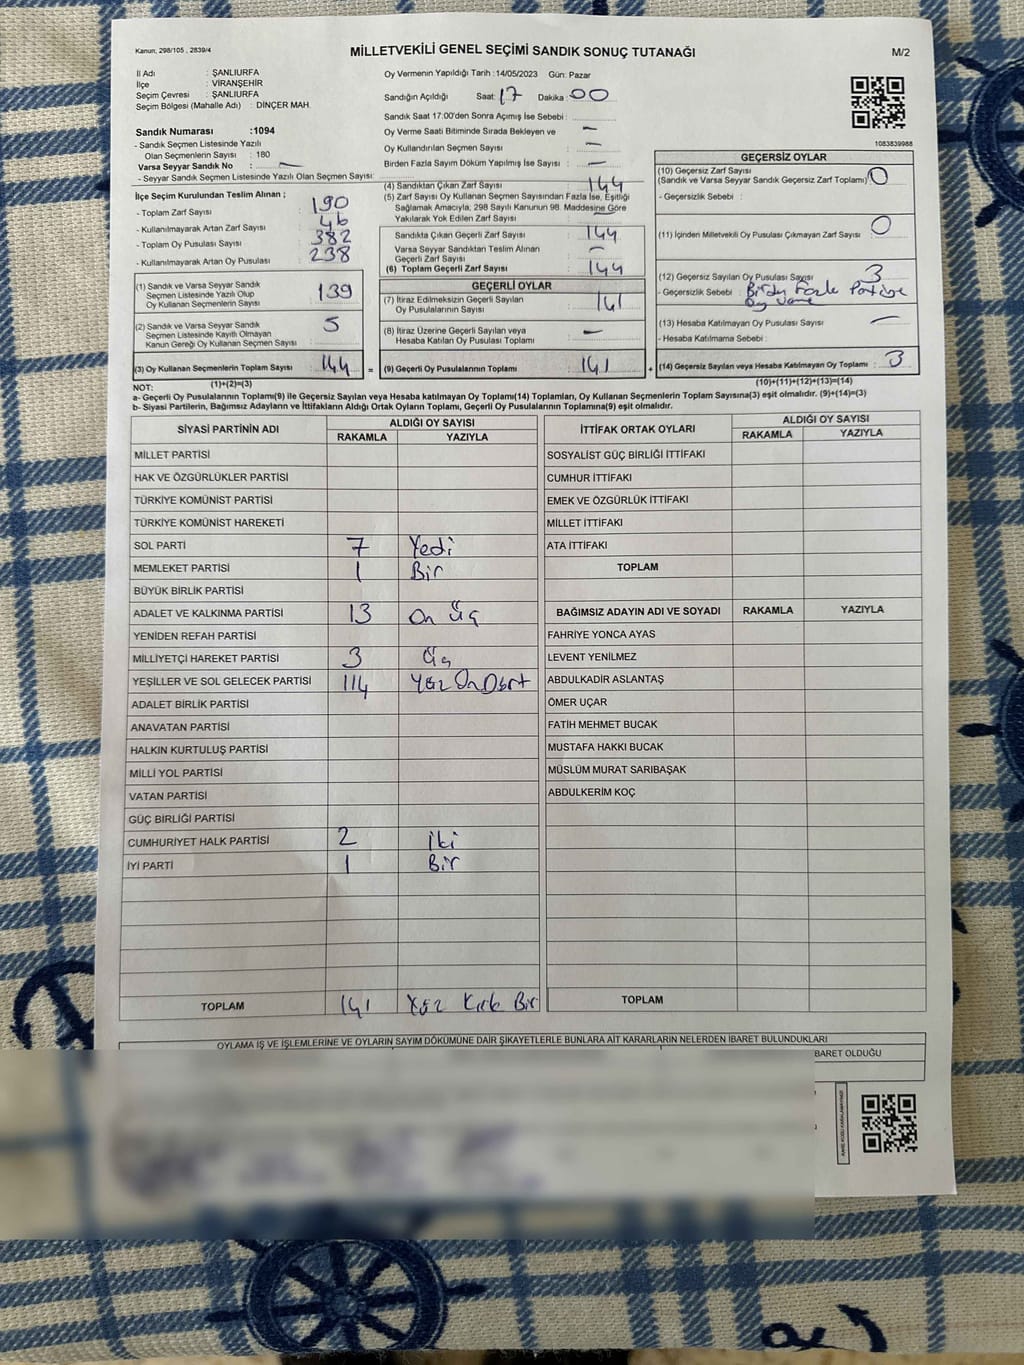 Kanun; 298/105 , 2839/4
MİLLETVEKİLİ GENEL SEÇİMİ SANDIK SONUÇ TUTANAĞI
M/2
İl Adı : ŞANLIURFA
İlçe : VİRANŞEHİR
Seçim Çevresi : ŞANLIURFA
Seçim Bölgesi (Mahalle Adı) : DİNÇER MAH.
Sandık Numarası :1094
- Sandık Seçmen Listesinde Yazılı
Olan Seçmenlerin Sayısı : 180
Varsa Seyyar Sandık No : —
- Seyyar Sandık Seçmen Listesinde Yazılı Olan Seçmen Sayısı:
Oy Vermenin Yapıldığı Tarih :14/05/2023 Gün: Pazar
Sandığın Açıldığı Saat: 17 Dakika: 00
Sandık Saat 17:00'den Sonra Açımış İse Sebebi :
Oy Verme Saati Bitiminde Sırada Bekleyen ve —
Oy Kullandırılan Seçmen Sayısı :
Birden Fazla Sayım Döküm Yapılmış İse Sayısı : —
1083839988
İlçe Seçim Kurulundan Teslim Alınan ;
- Toplam Zarf Sayısı : 190
- Kullanılmayarak Artan Zarf Sayısı : 46
- Toplam Oy Pusulası Sayısı : 382
- Kullanılmayarak Artan Oy Pusulası : 238
(1) Sandık ve Varsa Seyyar Sandık
Seçmen Listesinde Yazılı Olup
Oy Kullanan Seçmenlerin Sayısı : 139
(2) Sandık ve Varsa Seyyar Sandık
Seçmen Listesinde Kayıtlı Olmayan
Kanun Gereği Oy Kullanan Seçmen Sayısı : 5
(3) Oy Kullanan Seçmenlerin Toplam Sayısı : 144 =
(4) Sandıktan Çıkan Zarf Sayısı : 144
(5) Zarf Sayısı Oy Kullanan Seçmen Sayısından Fazla İse, Eşitliği
Sağlamak Amacıyla, 298 Sayılı Kanunun 98. Maddesine Göre
Yakılarak Yok Edilen Zarf Sayısı : —
Sandıkta Çıkan Geçerli Zarf Sayısı : 144
Varsa Seyyar Sandıktan Teslim Alınan
Geçerli Zarf Sayısı : —
(6) Toplam Geçerli Zarf Sayısı : 144
GEÇERLİ OYLAR
(7) İtiraz Edilmeksizin Geçerli Sayılan
Oy Pusulasının Sayısı : 141
(8) İtiraz Üzerine Geçerli Sayılan veya
Hesaba Katılan Oy Pusulası Toplamı : —
(9) Geçerli Oy Pusulalarının Toplamı : 141 +
GEÇERSİZ OYLAR
(10) Geçersiz Zarf Sayısı
(Sandık ve Varsa Seyyar Sandık Geçersiz Zarf Toplamı) : 0
- Geçersizlik Sebebi :
(11) İçinden Milletvekili Oy Pusulası Çıkmayan Zarf Sayısı : 0
(12) Geçersiz Sayılan Oy Pusulası Sayısı : 3
- Geçersizlik Sebebi : Birden Fazla Partiye
Oy Verme
(13) Hesaba Katılmayan Oy Pusulası Sayısı : —
- Hesaba Katılmama Sebebi :
(14) Geçersiz Sayılan veya Hesaba Katılmayan Oy Toplamı : 3
NOT: (1)+(2)=(3) (10)+(11)+(12)+(13)=(14)
a- Geçerli Oy Pusulalarının Toplamı(9) ile Geçersiz Sayılan veya Hesaba katılmayan Oy Toplamı(14) Toplamları, Oy Kullanan Seçmenlerin Toplam Sayısına(3) eşit olmalıdır. (9)+(14)=(3)
b- Siyasi Partilerin, Bağımsız Adayların ve İttifakların Aldığı Ortak Oyların Toplamı, Geçerli Oy Pusulalarının Toplamına(9) eşit olmalıdır.
SİYASİ PARTİNİN ADI ALDIĞI OY SAYISI
RAKAMLA YAZIYLA
MİLLET PARTİSİ
HAK VE ÖZGÜRLÜKLER PARTİSİ
TÜRKİYE KOMÜNİST PARTİSİ
TÜRKİYE KOMÜNİST HAREKETİ
SOL PARTİ 7 Yedi
MEMLEKET PARTİSİ 1 Bir
BÜYÜK BİRLİK PARTİSİ
ADALET VE KALKINMA PARTİSİ 13 On Üç
YENİDEN REFAH PARTİSİ
MİLLİYETÇİ HAREKET PARTİSİ 3 Üç
YEŞİLLER VE SOL GELECEK PARTİSİ 114 Yüz On Dört
ADALET BİRLİK PARTİSİ
ANAVATAN PARTİSİ
HALKIN KURTULUŞ PARTİSİ
MİLLİ YOL PARTİSİ
VATAN PARTİSİ
GÜÇ BİRLİĞİ PARTİSİ
CUMHURİYET HALK PARTİSİ 2 İki
İYİ PARTİ 1 Bir
TOPLAM 141 Yüz Kırk Bir
İTTİFAK ORTAK OYLARI ALDIĞI OY SAYISI
RAKAMLA YAZIYLA
SOSYALİST GÜÇ BİRLİĞİ İTTİFAKI
CUMHUR İTTİFAKI
EMEK VE ÖZGÜRLÜK İTTİFAKI
MİLLET İTTİFAKI
ATA İTTİFAKI
TOPLAM
BAĞIMSIZ ADAYIN ADI VE SOYADI RAKAMLA YAZIYLA
FAHRİYE YONCA AYAS
LEVENT YENİLMEZ
ABDULKADİR ASLANTAŞ
ÖMER UÇAR
FATİH MEHMET BUCAK
MUSTAFA HAKKI BUCAK
MÜSLÜM MURAT SARIBAŞAK
ABDULKERİM KOÇ
TOPLAM
OYLAMA İŞ VE İŞLEMLERİNE VE OYLARIN SAYIM DÖKÜMÜNE DAİR ŞİKAYETLERLE BUNLARA AİT KARARLARIN NELERDEN İBARET BULUNDUKLARI
BARET OLDUĞU